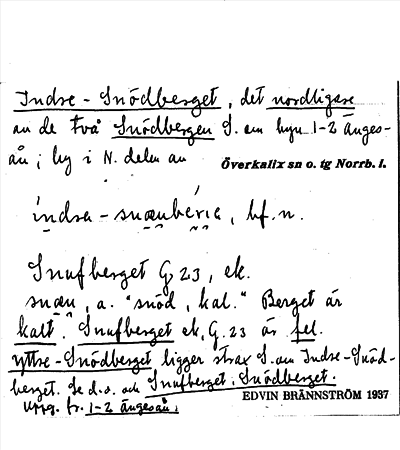 Indre-Snödberget, det nordligare
av de två Snödbergen S. om byn 1-2 Änges-
ån; lyg i N. delen av
Överkalix sn o. tg Norrb. l.
indra-snœnbériα, bf. n.
Snufberget G 23, ek.
snœn, a. "snöd, kal." Berget är
kalt. Snufberget ek. G. 23 är fel.
Yttre-Snödberget ligger strax S. om Indre-Snöd-
berget. Se d. o. och Snufberget: Snödberget.
Uppg. fr. 1-2 Ängesån.
EDVIN BRÄNNSTRÖM 1937